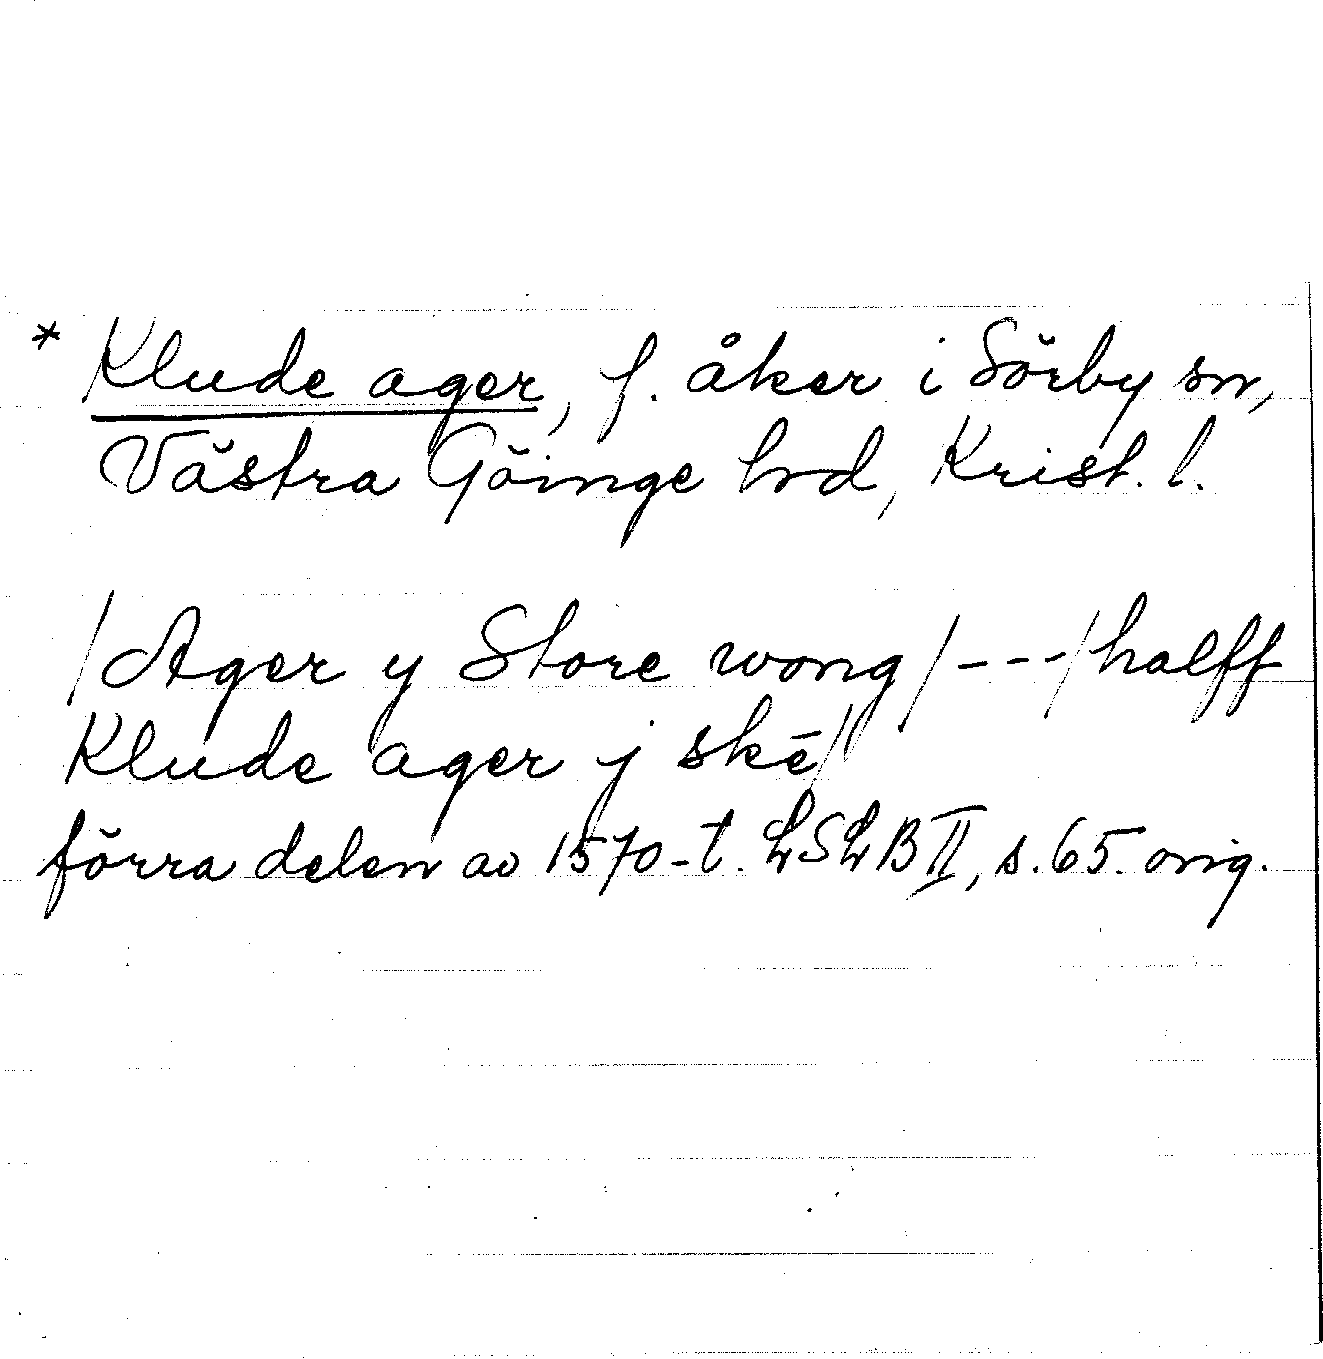 * Klude ager, f. åker i Sörby sn,
Västra Göinge hrd, Krist. l.
/Ager y Store wong/---/halff
Klude ager j skē/
förra delen av 1570-t. LSLB II, s. 65. orig.